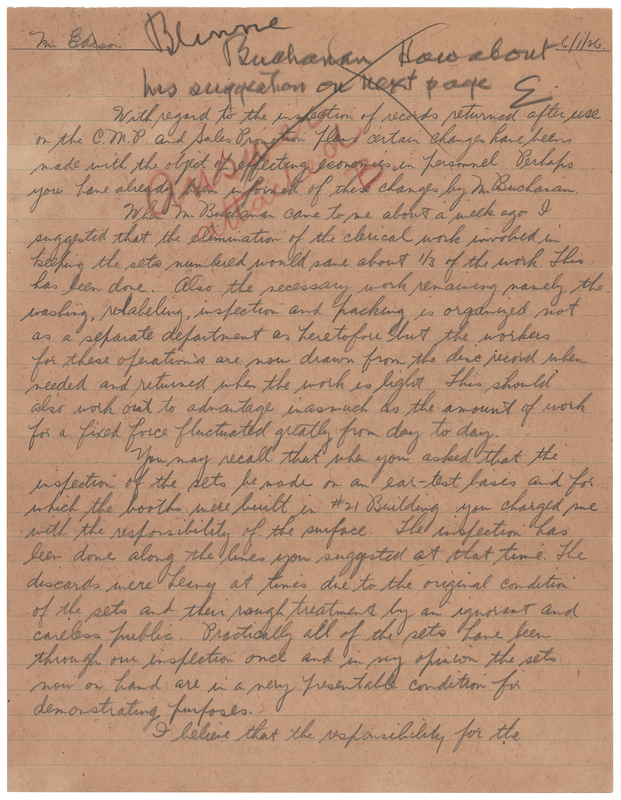 Mr Edison
6/1/26.
Blinne
Buchanan How about
his suggestion on next page
E
With regard to the inspection of records returned after use
on the C.M.P. and Sales Promotion Plan certain changes have been
made with the object of effecting economies in personnel. Perhaps
you have already been informed of these changes by Mr Buchanan.
When Mr Buchanan came to me about a week ago I
suggested that the elimination of the clerical work involved in
keeping the sets numbered would save about 1/3 of the work. This
has been done. Also the necessary work remaining namely the
washing, relabeling, inspection and packing is organized not
as a separate department as heretofore but the workers
for these operations are now drawn from the disc record when
needed and returned when the work is light. This should
also work out to advantage inasmuch as the amount of work
for a fixed force fluctuated greatly from day to day.
You may recall that when you asked that the
inspection of the sets be made on an ear-test bases and for
which the booths were built in #21 Building you charged me
with the responsibility of the surface. The inspection has
been done along the lines you suggested at that time. The
discards were heavy at times due to the original condition
of the sets and their rough treatment by an ignorant and
careless public. Practically all of the sets have been
through our inspection once and in my opinion the sets
now on hand are in a very presentable condition for
demonstrating purposes.
I believe that the responsibility for the
attached